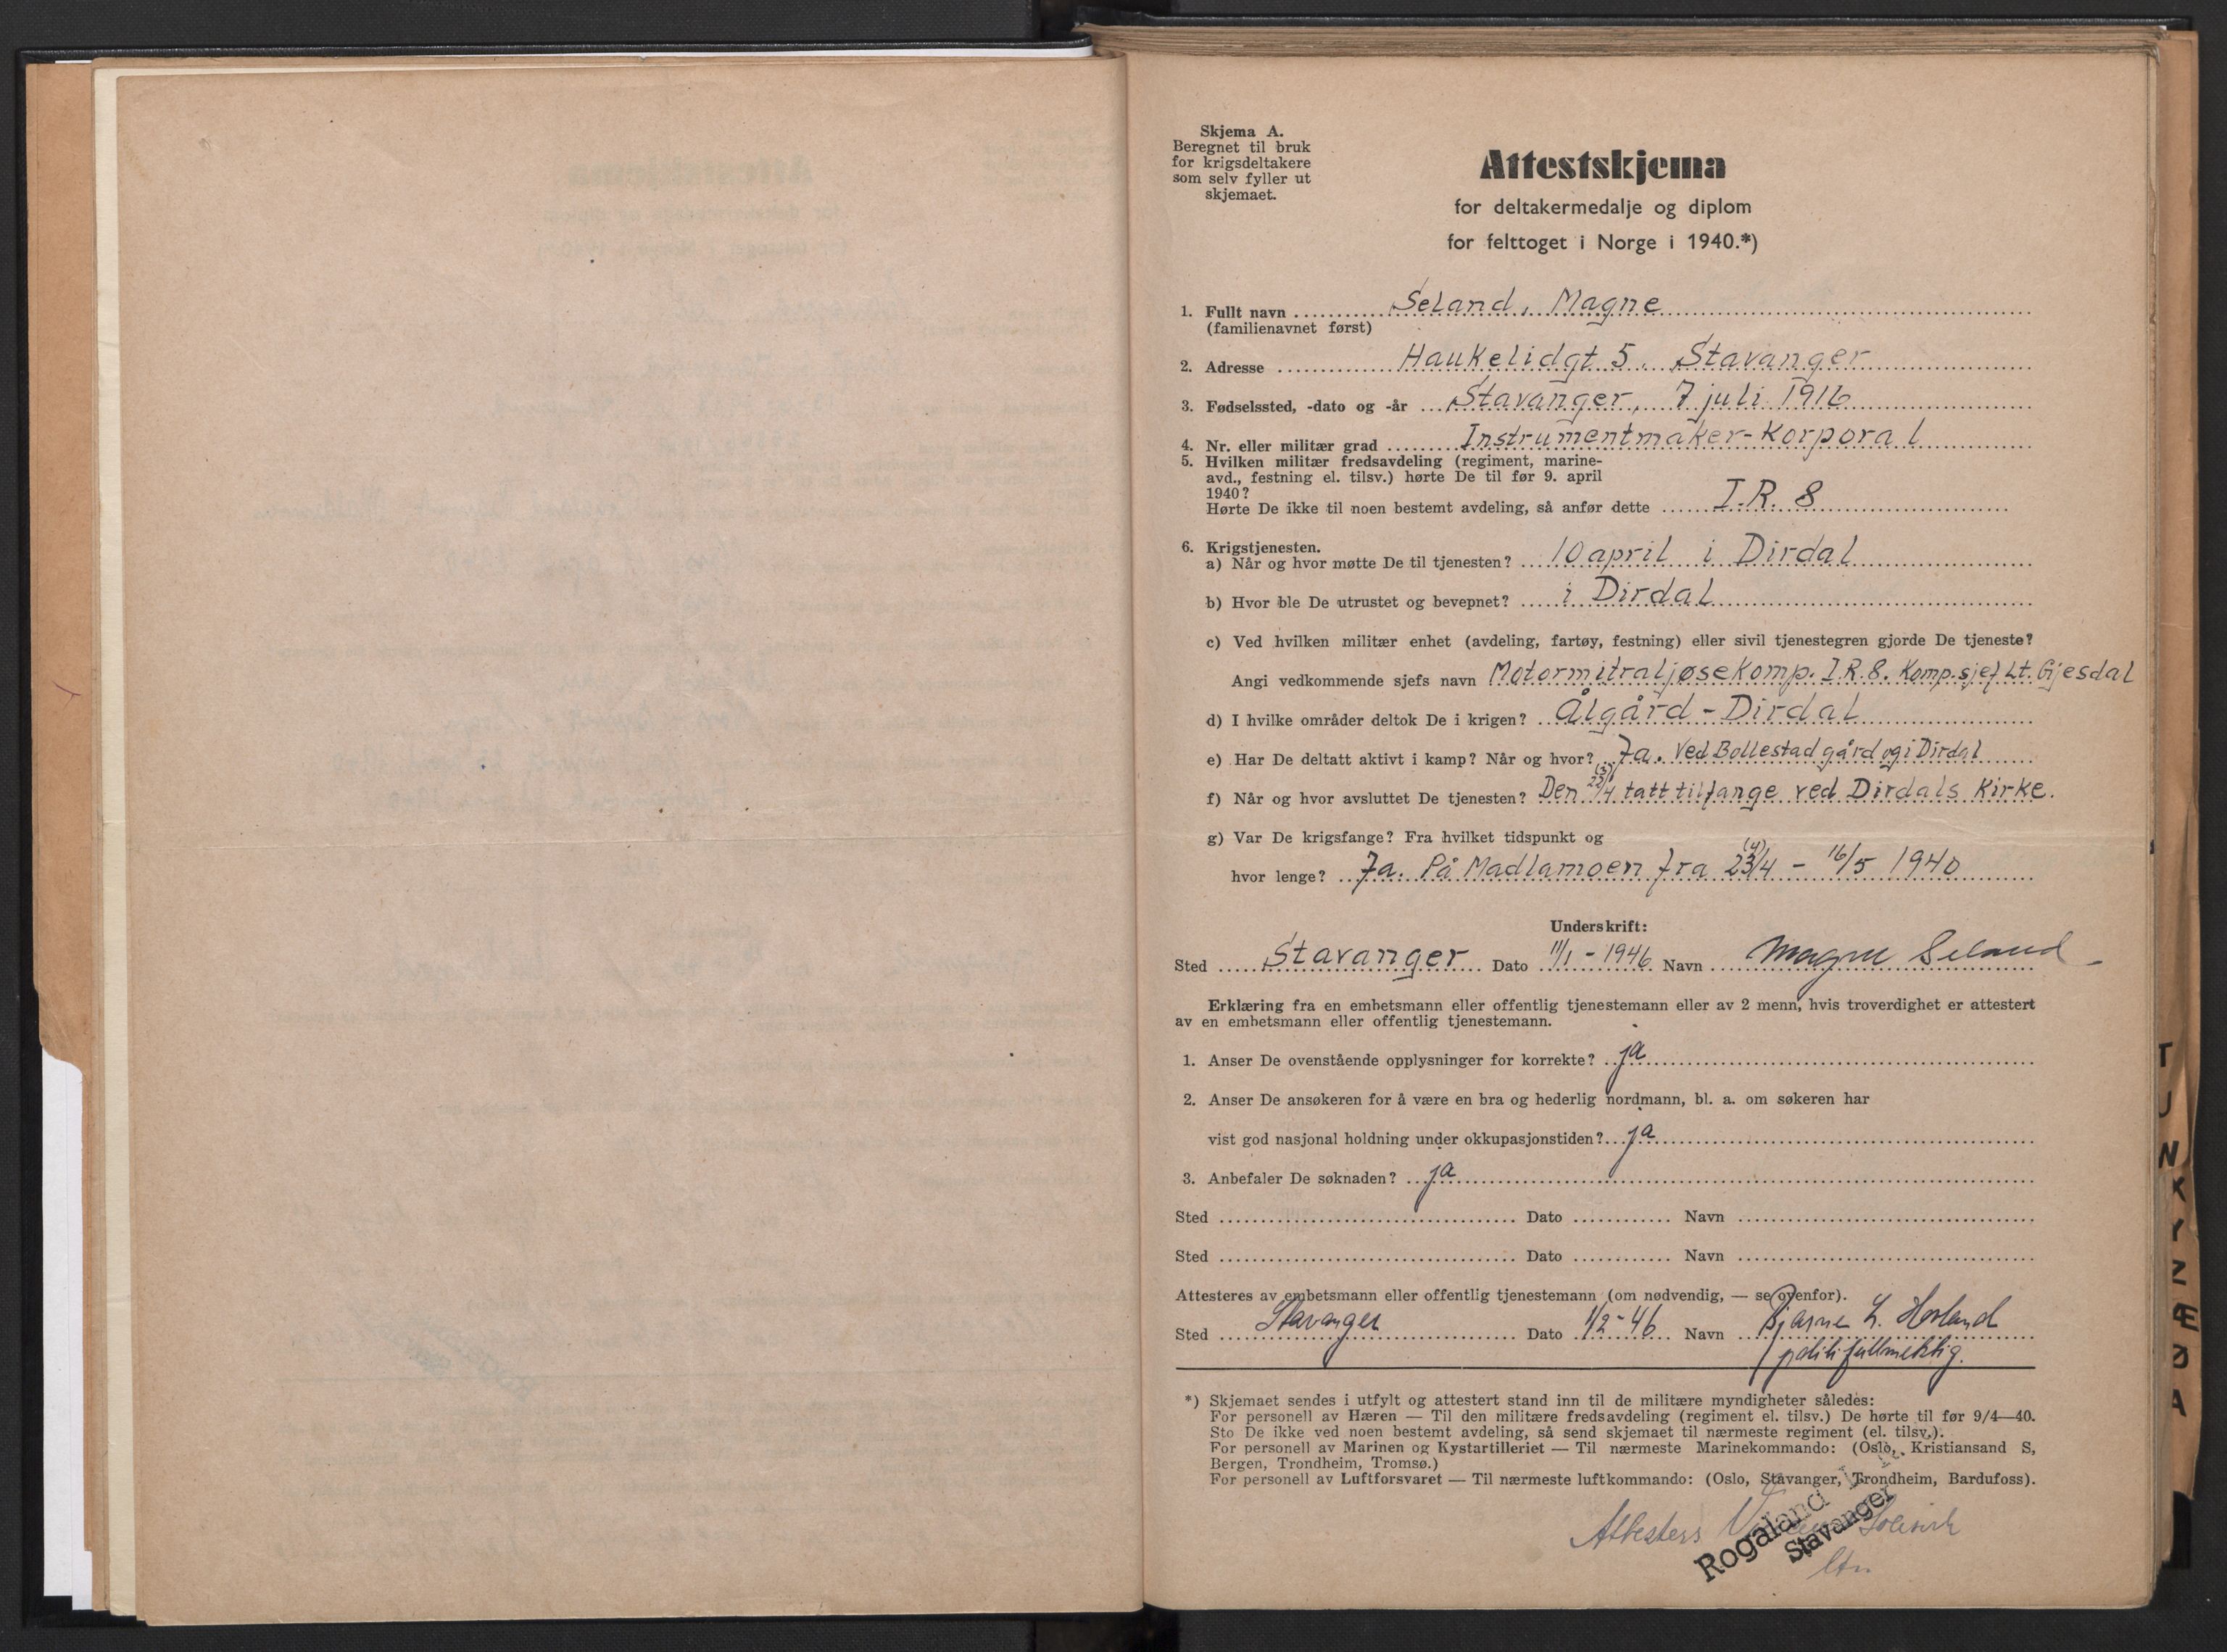 Skjema A.
Beregnet til bruk
for krigsdeltakere
som selv fyller ut
skjemaet.
Attestskjema
for deltakermedalje og diplom
for felttoget i Norge i 1940.*)
1. Fullt navn Seland, Magne
(familienavnet først)
2. Adresse Haukelidgt 5. Stavanger
3. Fødselssted, -dato og -år Stavanger, 7 juli 1916
4. Nr. eller militær grad Instrumentmaker-Korporal
5. Hvilken militær fredsavdeling (regiment, marine-
avd., festning el. tilsv.) hørte De til før 9. april
1940?
Hørte De ikke til noen bestemt avdeling, så anfør dette I.R. 8
6. Krigstjenesten.
a) Når og hvor møtte De til tjenesten? 10 april i Dirdal
b) Hvor ble De utrustet og bevepnet? i Dirdal
c) Ved hvilken militær enhet (avdeling, fartøy, festning) eller sivil tjenestegren gjorde De tjeneste?
Angi vedkommende sjefs navn Motormitraljøsekomp. I.R.8. Komp.sjef Lt. Gjesdal
d) I hvilke områder deltok De i krigen? Ålgård - Dirdal
e) Har De deltatt aktivt i kamp? Når og hvor? Ja. Ved Bollestad gård og i Dirdal
f) Når og hvor avsluttet De tjenesten? Den /4 tatt til fange ved Dirdals Kirke.
g) Var De krigsfange? Fra hvilket tidspunkt og
hvor lenge? Ja. På Madlamoen fra 23/4 - 16/5 1940
Underskrift:
Sted Stavanger Dato 11/1 - 1946 Navn Magne Seland
Erklæring fra en embetsmann eller offentlig tjenestemann eller av 2 menn, hvis troverdighet er attestert
av en embetsmann eller offentlig tjenestemann.
1. Anser De ovenstående opplysninger for korrekte? ja
2. Anser De ansøkeren for å være en bra og hederlig nordmann, bl. a. om søkeren har
vist god nasjonal holdning under okkupasjonstiden? ja
3. Anbefaler De søknaden? ja
Sted Dato Navn
Sted Dato Navn
Attesteres av embetsmann eller offentlig tjenestemann (om nødvendig, — se ovenfor).
Sted Stavanger Dato 1/2-46 Navn Bjarne L. Horland
politifullmektig.
*) Skjemaet sendes i utfylt og attestert stand inn til de militære myndigheter således:
For personell av Hæren — Til den militære fredsavdeling (regiment el. tilsv.) De hørte til før 9/4—40.
Sto De ikke ved noen bestemt avdeling, så send skjemaet til nærmeste regiment (el. tilsv.).
For personell av Marinen og Kystartilleriet — Til nærmeste Marinekommando: (Oslo, Kristiansand S,
Bergen, Trondheim, Tromsø.)
For personell av Luftforsvaret — Til nærmeste luftkommando: (Oslo, Stavanger, Trondheim, Bardufoss).
Attesters
Rogaland
Stavanger
ltn